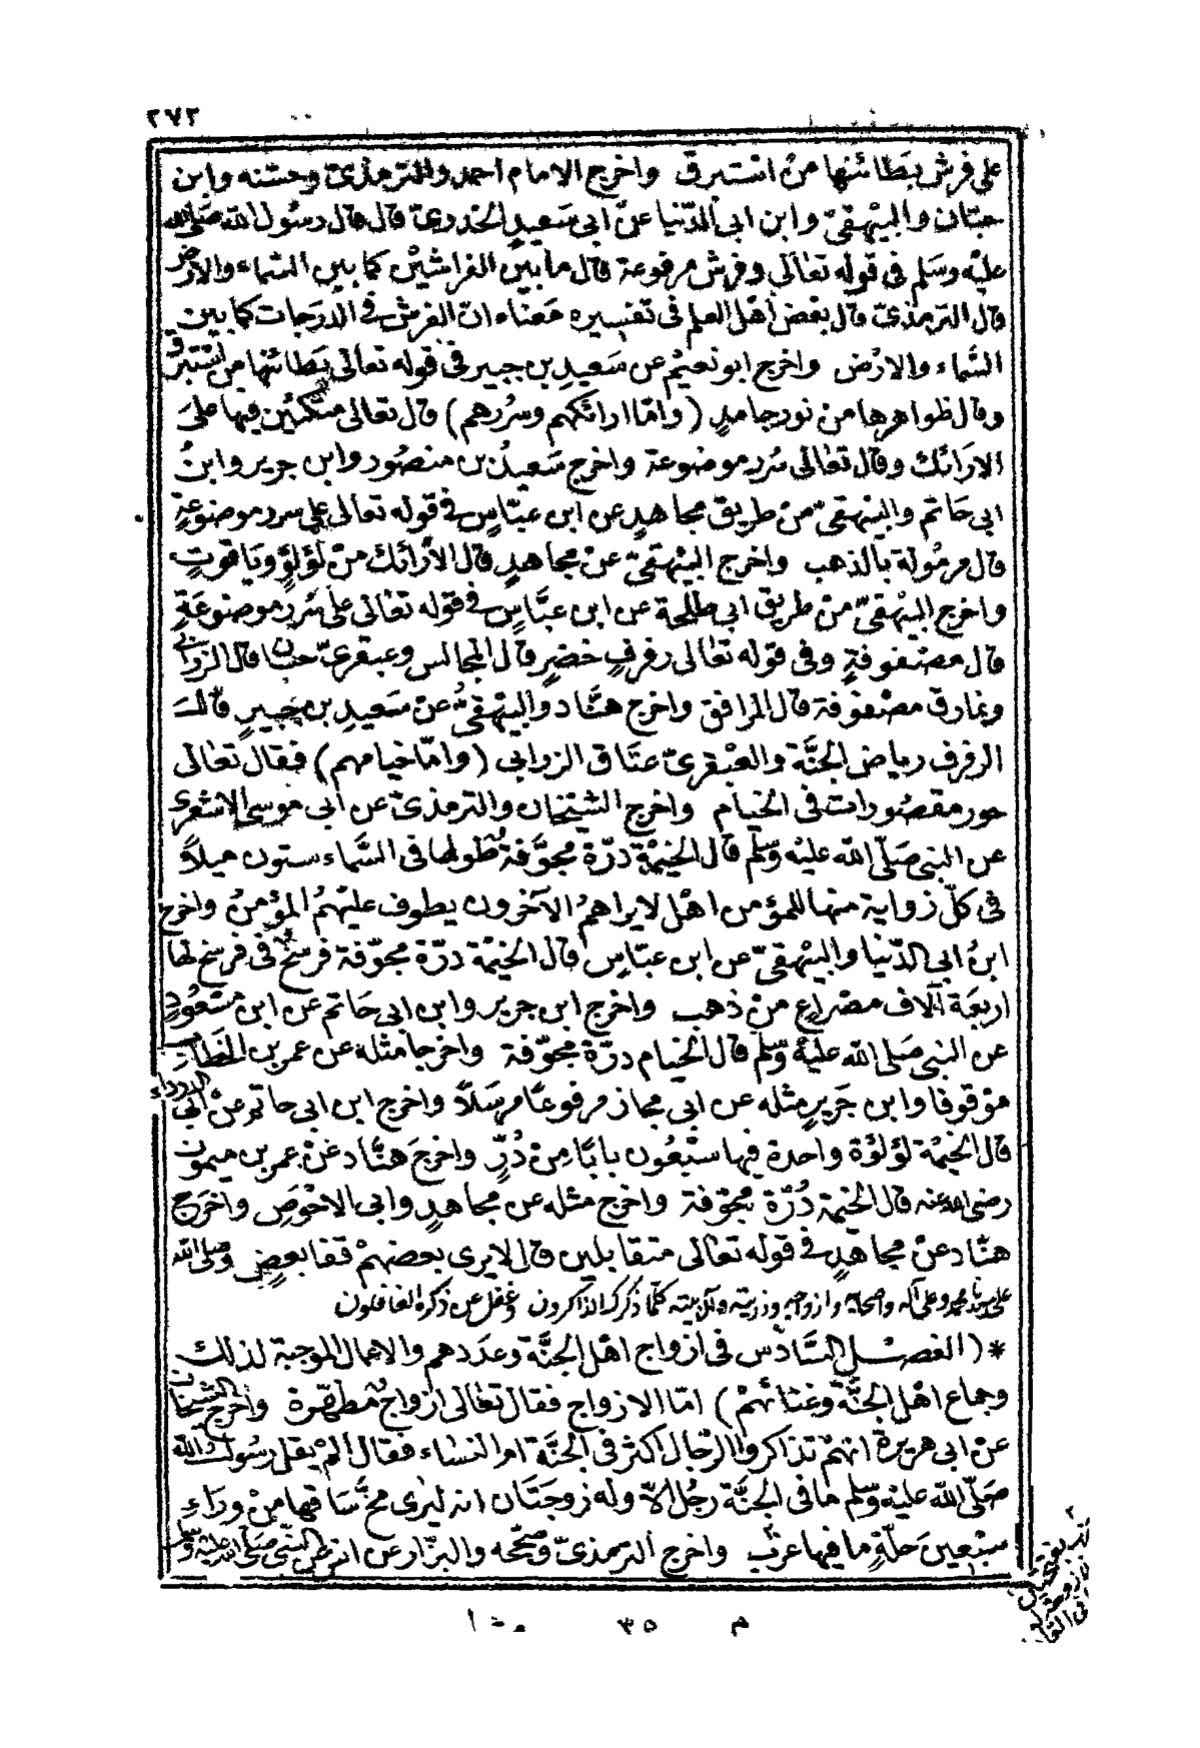 ٢٧٣
على فرش بطائنها من استبرق واخرج الامام احمد والترمذى وحسّنه وابن
حبّان والبيهقىّ وابن ابى الدّنيا عن ابى سعيد الخدرىّ قال قال رسول الله صلى الله
عليه وسلم فى قوله تعالى وفرش مرفوعة قال ما بين الفراشين كما بين السّماء والارض
قال الترمذىّ قال بعض اهل العلم فى تفسيره معناه انّ الفرش فى الدّرجات كما بين
السّماء والارض واخرج ابو نعيم عن سعيد بن جبير فى قوله تعالى بطائنها من استبرق
وقال ظواهرها من نور جامد (وامّا ارائكهم وسررهم) قال تعالى متكئين فيها على
الارائك وقال تعالى سرر موضوعة واخرج سعيد بن منصور وابن جرير وابن
ابى حاتم والبيهقىّ من طريق مجاهد عن ابن عبّاس فى قوله تعالى على سرر موضونة
قال مرمولة بالذهب واخرج البيهقىّ عن مجاهد قال الارائك من لؤلؤ وياقوت
واخرج البيهقىّ من طريق ابى طلحة عن ابن عبّاس فى قوله تعالى على سرر موضونة
قال مصفوفة وفى قوله تعالى رفرف خضر قال المجالس وعبقرىّ حسان قال الزرابى
ونمارق مصفوفة قال المرافق واخرج هنّاد والبيهقىّ عن سعيد بن جبير قال
الرفرف رياض الجنّة والعبقرىّ عتاق الزرابى (وامّا خيامهم) فقال تعالى
حور مقصورات فى الخيام واخرج الشيخان والترمذىّ عن ابى موسى الاشعرى
عن النبى صلّى الله عليه وسلّم قال الخيمة درّة مجوّفة طولها فى السّماء ستون ميلاً
فى كلّ زواية منها للمؤمن اهل لا يراهم الآخرون يطوف عليهم المؤمن واخرج
ابن ابى الدّنيا والبيهقىّ عن ابن عبّاس قال الخيمة درّة مجوّفة فرسخ فى فرسخ لها
اربعة آلاف مصراع من ذهب واخرج ابن جرير وابن ابى حاتم عن ابن مسعود
عن النبى صلى الله عليه وسلّم قال الخيام درّة مجوّفة واخرجا مثله عن عمر بن الخطاب
موقوفا وابن جرير مثله عن ابى مجاز مرفوعًا مرسلاً واخرج ابن ابى حاتم عن ابى الدرداء
قال الخيمة لؤلؤة واحدة فيها سبعون بابًا من دُرّ واخرج هنّاد عن عمر بن ميمون
رضى الله عنه قال الخيمة دُرّة مجوّفة واخرج مثله عن مجاهد وابى الاحوص واخرج
هنّاد عن مجاهد فى قوله تعالى متقابلين قال لا يرى بعضهم قفا بعض وصلى الله
على سيدنا محمد وعلى آله واصحابه وازواجه وذريته واهل بيته كلّما ذكرك الذاكرون وغفل عن ذكره الغافلون
* (الفصل السّادس فى ازواج اهل الجنّة وعددهم والاعمال الموجبة لذلك
وجماع اهل الجنّة وغنائهم) امّا الازواج فقال تعالى ازواج مطهّرة واخرج الشيخان
عن ابى هريرة انهم تذاكروا الرّجال اكثر فى الجنّة ام النساء فقال الم يقل رسول الله
صلّى الله عليه وسلّم ما فى الجنّة رجل الاّ وله زوجتان انه ليرى مخّ ساقهما من وراء
سبعين حلّة ما فيها عزب واخرج الترمذىّ وصحّحه والبزّار عن انس عن النّبى صلى الله عليه وسلم
م ٣٥